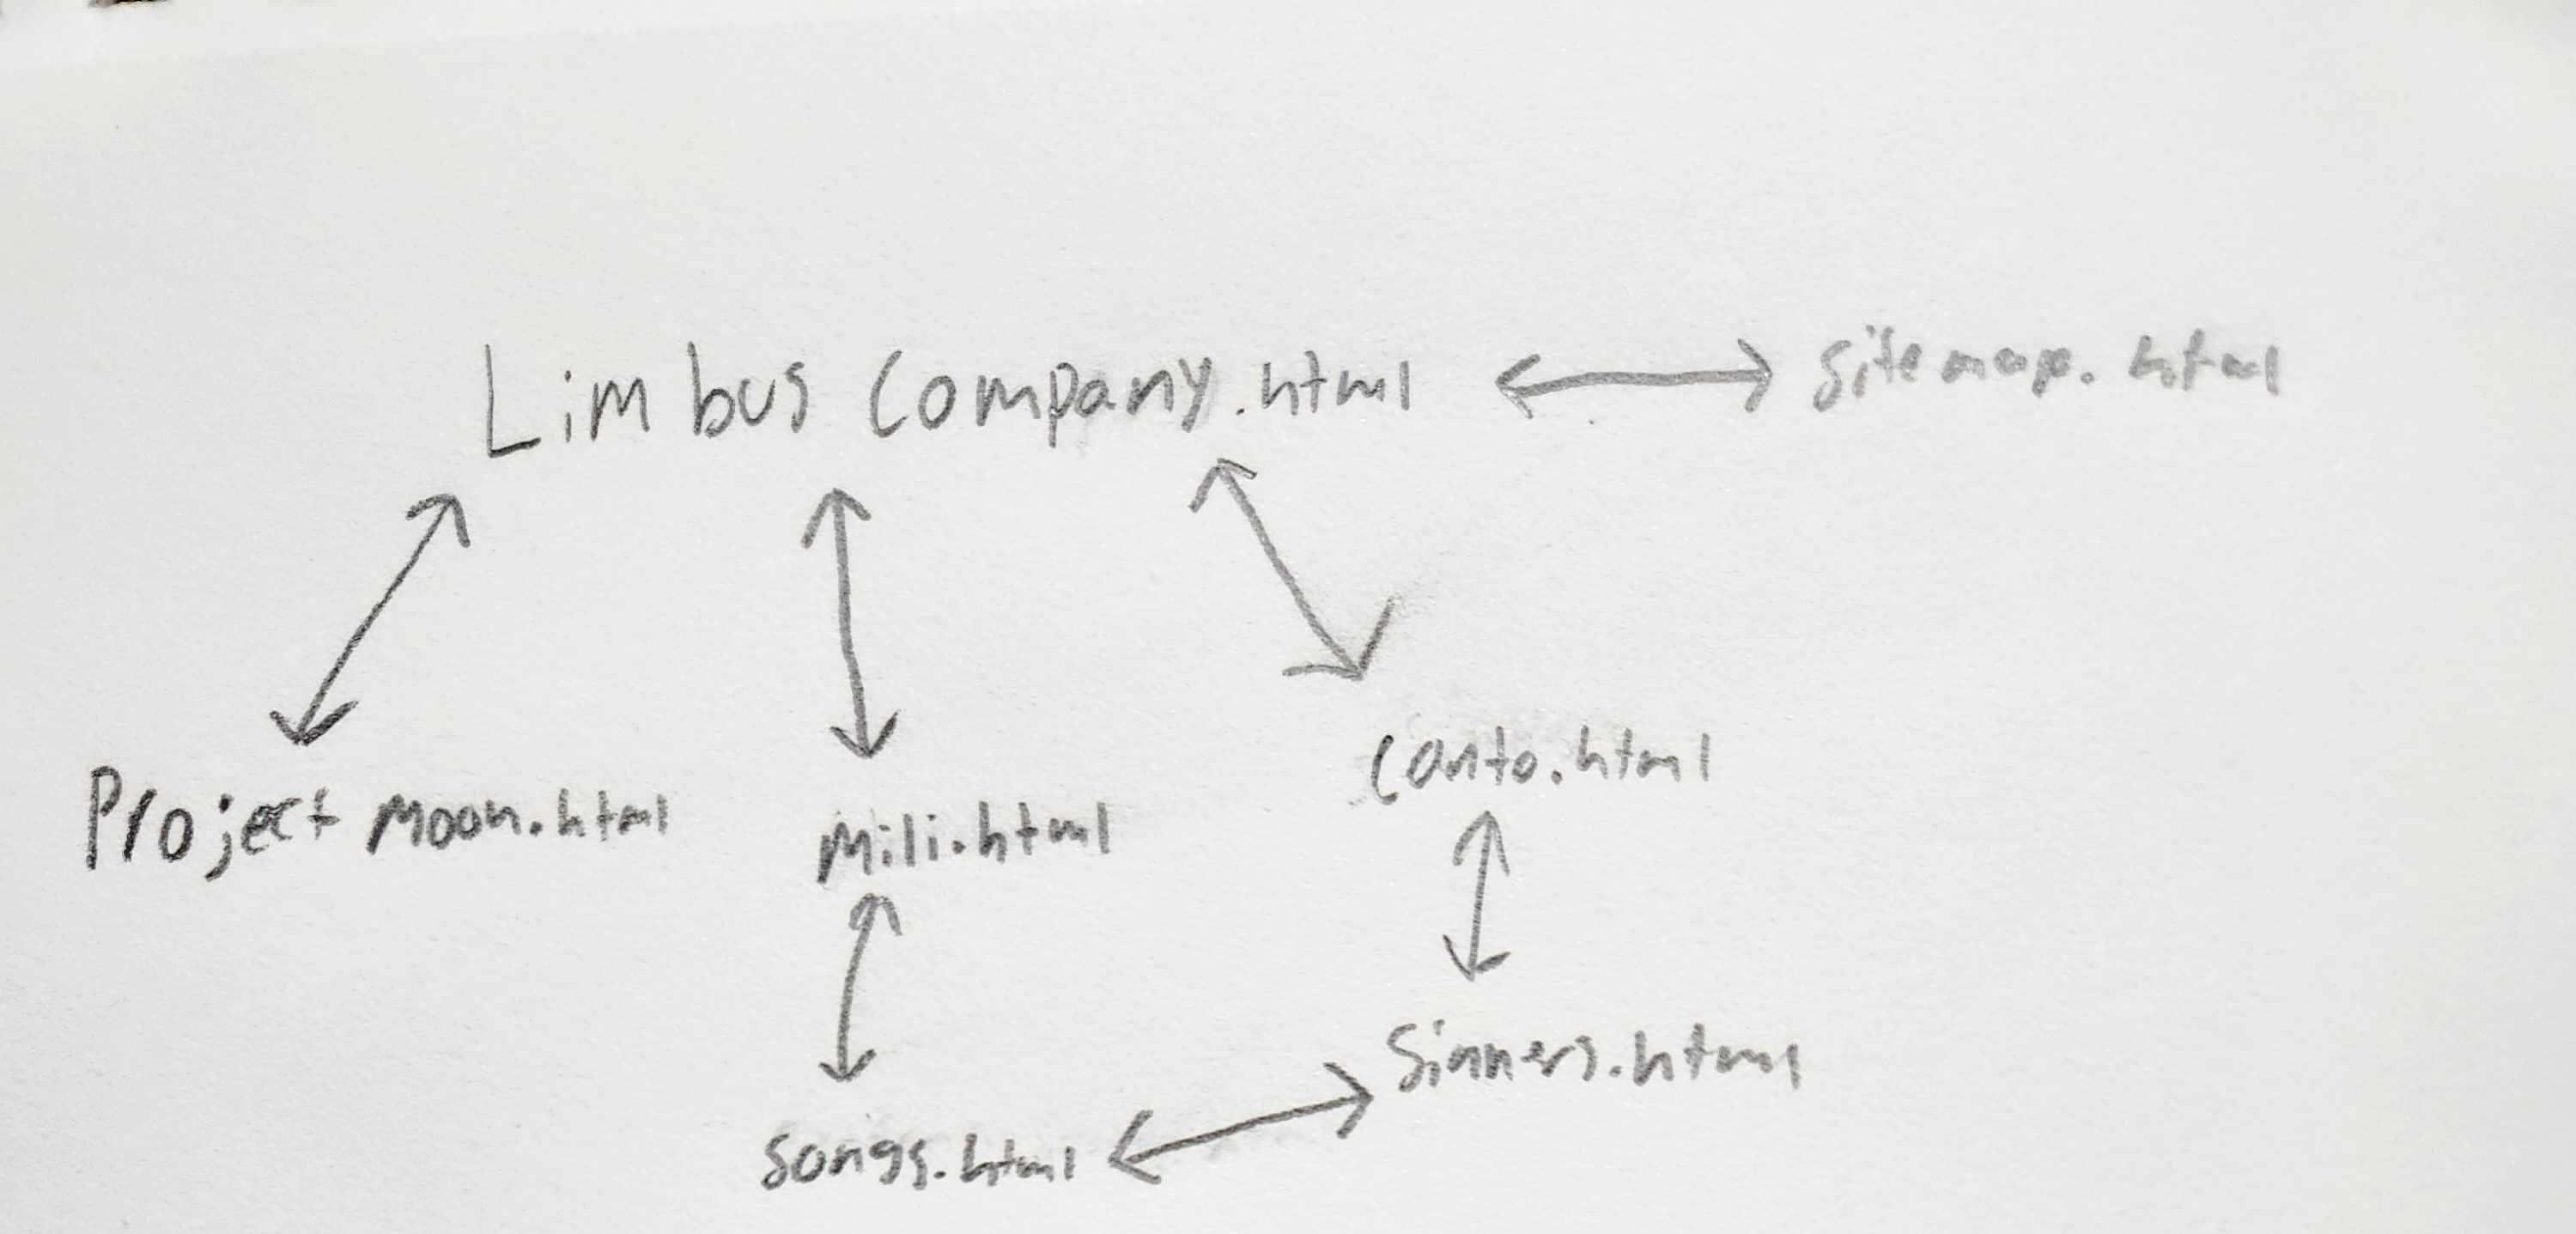 Limbus Company.html
Sitemap.html
Project Moon.html
Mili.html
Canto.html
Sinners.html
Songs.html